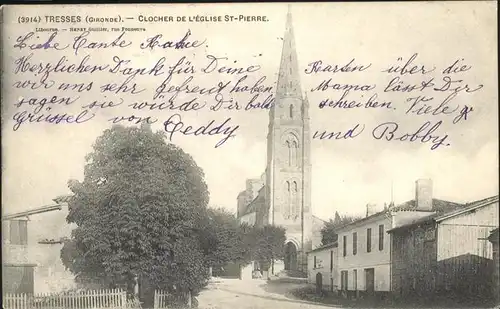 (3914) TRESSES (GIRONDE). — CLOCHER DE L'ÉGLISE ST-PIERRE.
Libourne. — HENRY Guillier, rue Fonneuve
Liebe Tante Käthe.
Herzlichen Dank für Deine Karten über die
wir uns sehr gefreut haben. Mama lässt Dir
sagen sie würde Dir bald schreiben. Viele
Grüsse von Teddy und Bobby.